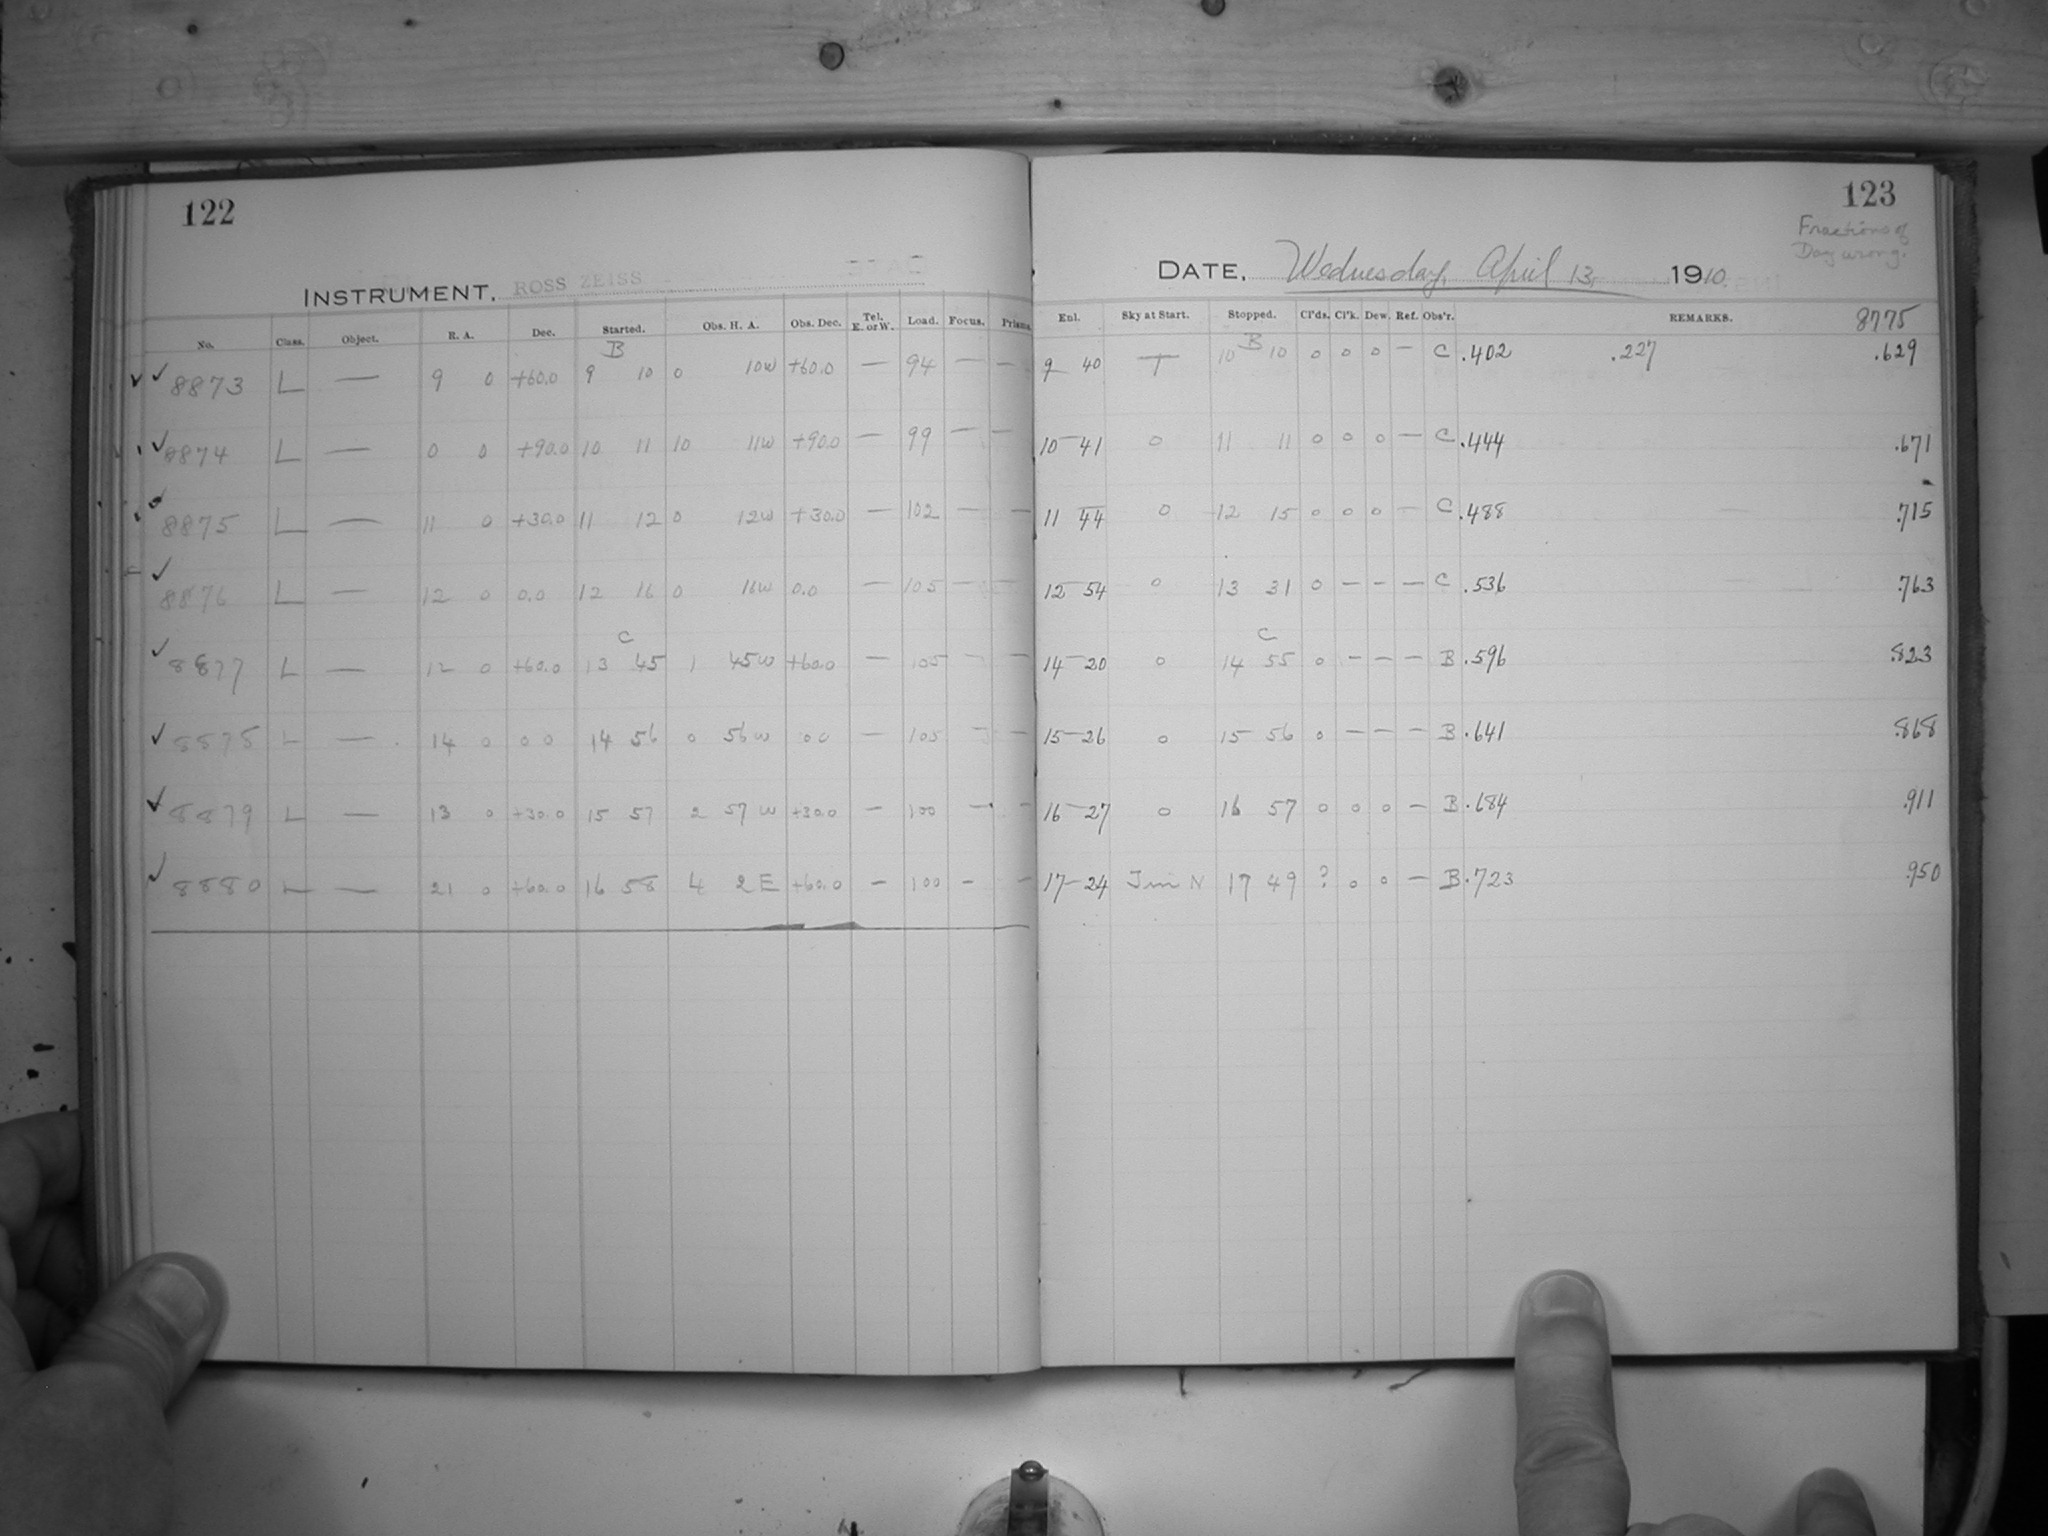 122
INSTRUMENT. ROSS ZEISS
No. Class. Object. R. A. Dec. Started. Obs. H. A. Obs. Dec. Tel. E. or W. Load. Focus. Prisms.
B
8873 L — 9 0 +60.0 9 10 0 10W +60.0 — 94 — —
8874 L — 0 0 +90.0 10 11 10 11W +90.0 — 99 — —
8875 L — 11 0 +30.0 11 12 0 12W +30.0 — 102 — —
8876 L — 12 0 0.0 12 16 0 16W 0.0 — 105 — —
C
8877 L — 12 0 +60.0 13 45 1 45W +60.0 — 105 — —
8878 L — 14 0 0 0 14 56 0 56W 0 0 — 105 — —
8879 L — 13 0 +30.0 15 57 2 57W +30.0 — 100 — —
8880 L — 21 0 +60.0 16 58 4 2E +60.0 — 100 — —
123
Fractions of
Day wrong.
DATE. Wednesday, April 13, 1910.
Enl. Sky at Start. Stopped. Cl'ds. Cl'k. Dew. Ref. Obs'r. REMARKS. 8775
B
9 40 — 10 10 0 0 0 — C .402 .227 .629
10 41 0 11 11 0 0 0 — C .444 .671
11 44 0 12 15 0 0 0 — C .488 .715
12 54 0 13 31 0 — — — C .536 .763
C
14 20 0 14 55 0 — — — B .596 .823
15 26 0 15 56 0 — — — B .641 .868
16 27 0 16 57 0 0 0 — B .684 .911
17 24 N 17 49 ? 0 0 — B .723 .950